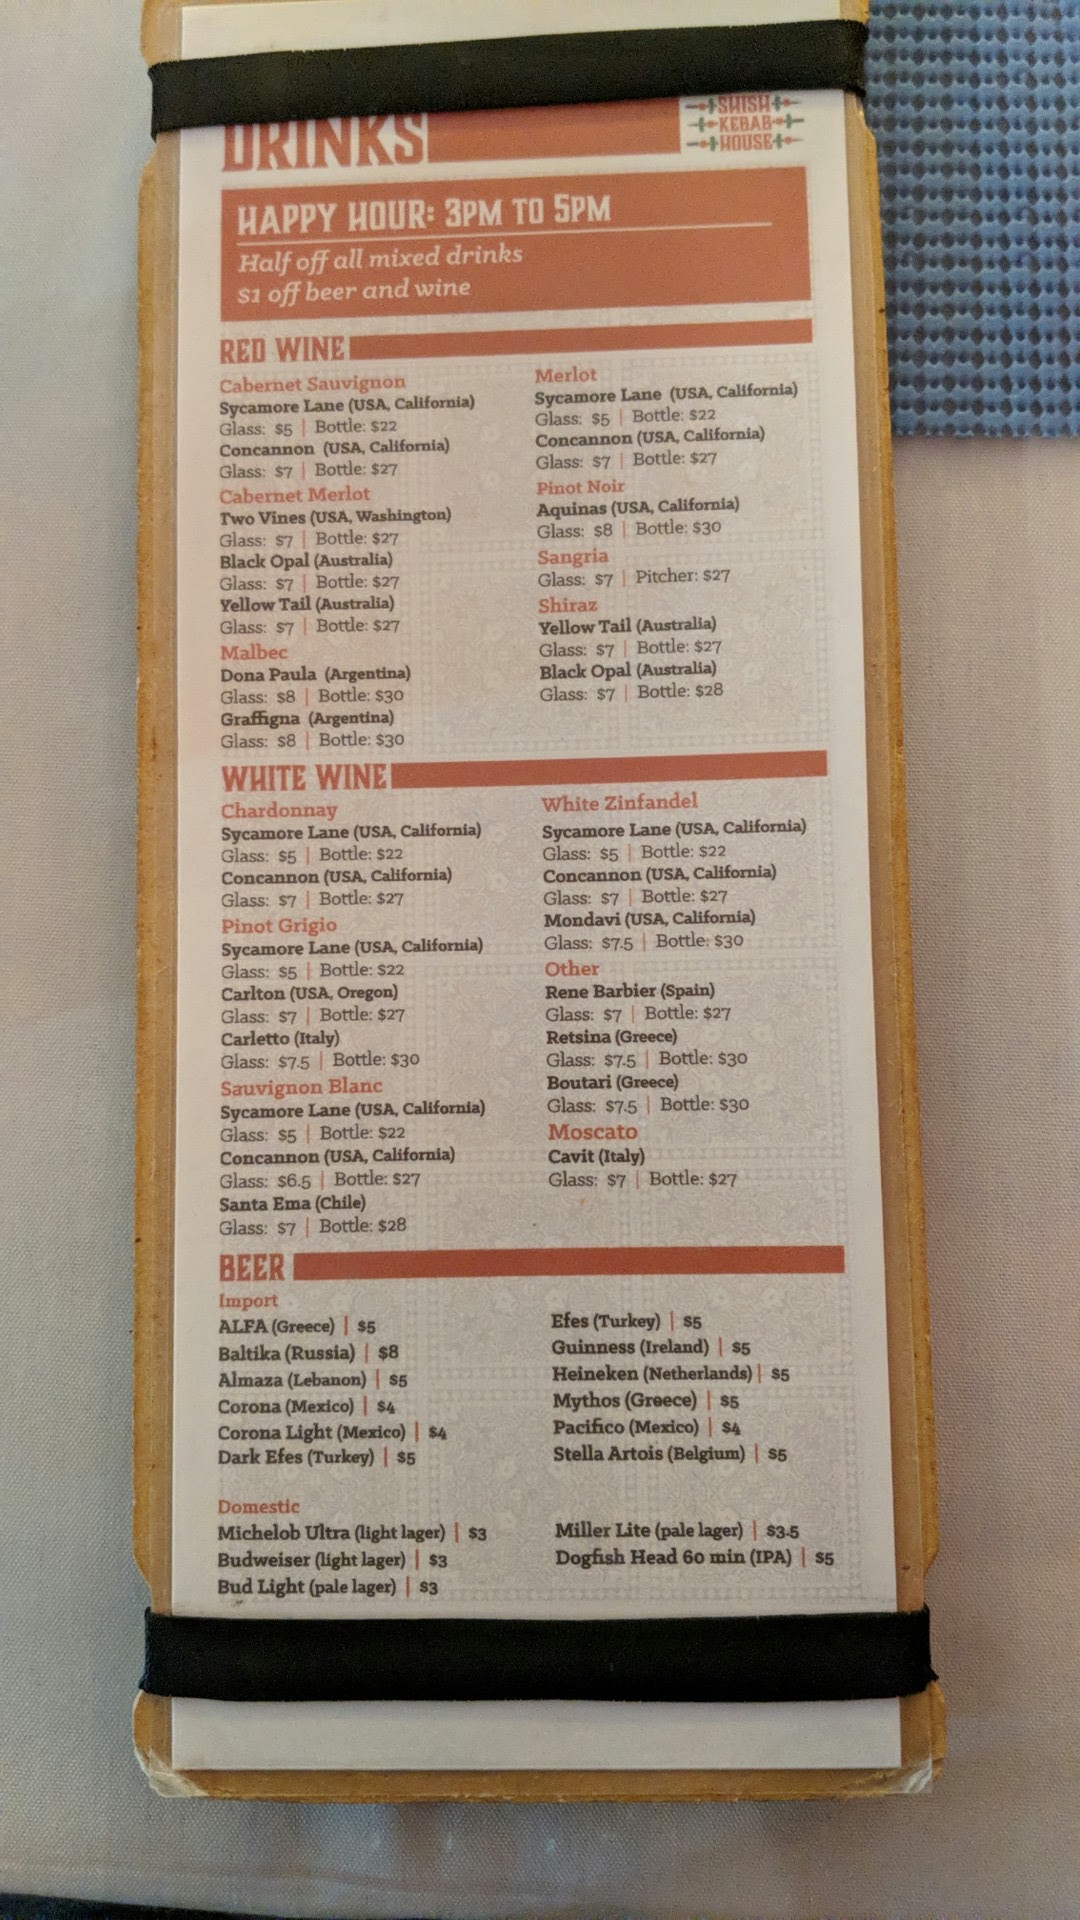 DRINKS
SHISH
KEBAB
HOUSE
HAPPY HOUR: 3PM TO 5PM
Half off all mixed drinks
$1 off beer and wine
RED WINE
Cabernet Sauvignon
Sycamore Lane (USA, California)
Glass: $5 | Bottle: $22
Concannon (USA, California)
Glass: $7 | Bottle: $27
Cabernet Merlot
Two Vines (USA, Washington)
Glass: $7 | Bottle: $27
Black Opal (Australia)
Glass: $7 | Bottle: $27
Yellow Tail (Australia)
Glass: $7 | Bottle: $27
Malbec
Dona Paula (Argentina)
Glass: $8 | Bottle: $30
Graffigna (Argentina)
Glass: $8 | Bottle: $30
Merlot
Sycamore Lane (USA, California)
Glass: $5 | Bottle: $22
Concannon (USA, California)
Glass: $7 | Bottle: $27
Pinot Noir
Aquinas (USA, California)
Glass: $8 | Bottle: $30
Sangria
Glass: $7 | Pitcher: $27
Shiraz
Yellow Tail (Australia)
Glass: $7 | Bottle: $27
Black Opal (Australia)
Glass: $7 | Bottle: $28
WHITE WINE
Chardonnay
Sycamore Lane (USA, California)
Glass: $5 | Bottle: $22
Concannon (USA, California)
Glass: $7 | Bottle: $27
Pinot Grigio
Sycamore Lane (USA, California)
Glass: $5 | Bottle: $22
Carlton (USA, Oregon)
Glass: $7 | Bottle: $27
Carletto (Italy)
Glass: $7.5 | Bottle: $30
Sauvignon Blanc
Sycamore Lane (USA, California)
Glass: $5 | Bottle: $22
Concannon (USA, California)
Glass: $6.5 | Bottle: $27
Santa Ema (Chile)
Glass: $7 | Bottle: $28
White Zinfandel
Sycamore Lane (USA, California)
Glass: $5 | Bottle: $22
Concannon (USA, California)
Glass: $7 | Bottle: $27
Mondavi (USA, California)
Glass: $7.5 | Bottle: $30
Other
Rene Barbier (Spain)
Glass: $7 | Bottle: $27
Retsina (Greece)
Glass: $7.5 | Bottle: $30
Boutari (Greece)
Glass: $7.5 | Bottle: $30
Moscato
Cavit (Italy)
Glass: $7 | Bottle: $27
BEER
Import
ALFA (Greece) | $5
Baltika (Russia) | $8
Almaza (Lebanon) | $5
Corona (Mexico) | $4
Corona Light (Mexico) | $4
Dark Efes (Turkey) | $5
Efes (Turkey) | $5
Guinness (Ireland) | $5
Heineken (Netherlands) | $5
Mythos (Greece) | $5
Pacifico (Mexico) | $4
Stella Artois (Belgium) | $5
Domestic
Michelob Ultra (light lager) | $3
Budweiser (light lager) | $3
Bud Light (pale lager) | $3
Miller Lite (pale lager) | $3.5
Dogfish Head 60 min (IPA) | $5